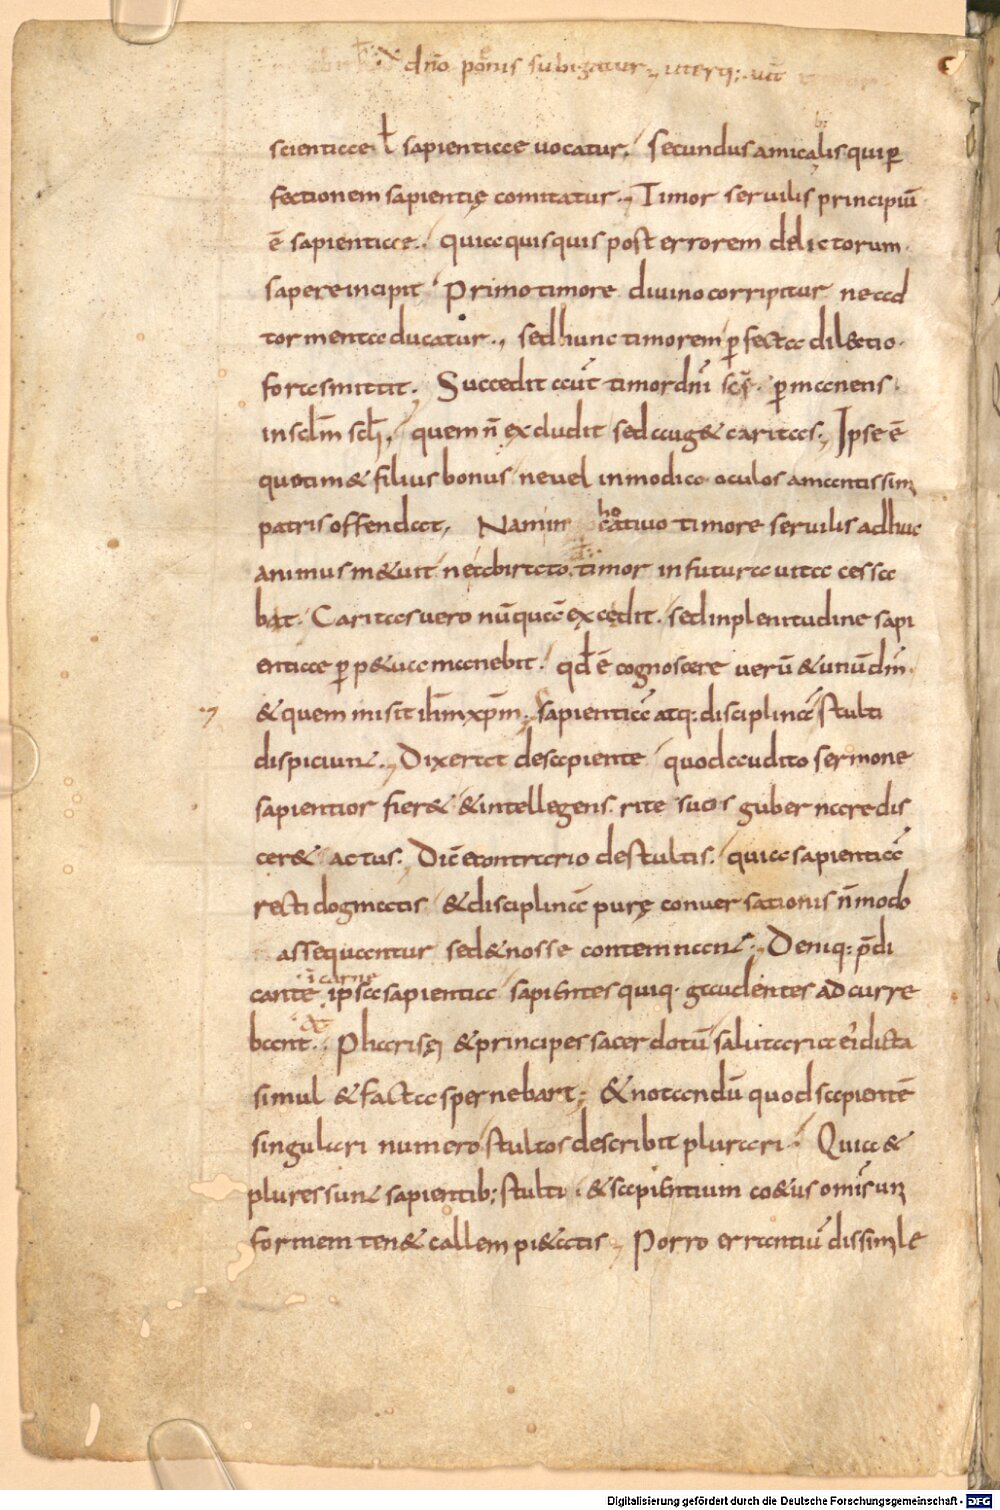 dn̄o pōnis subigatur., uterq;. ut̄
scientiae ƚ sapientiae uocatur. secundus amicalis qui ꝑ
bi
fectionem sapientię comitatur., Timor seruilis principiū
ē sapientiae. quia quisquis post errorem delictorum.
sapere incipit Primo timore diuino corripitur ne ad
tormenta ducatur., sed hunc timorem ꝑfecta dilectio.
foras mittit. Succedit aut̄ timor dn̄i sc̄s. ꝑmanens.
in sc̄lm sc̄li, quem n̄ excludit sed aug& caritas., Ipse ē
quo tim& filius bonus ne uel in modico oculos amantissimi
patris offendat, Nam in ho
catiuo timore seruilis adhuc
animus m&uit ne tabirato timor in futura uita cessa
bat. Caritas uero nūquā excedit. sed in plenitudine sapi
entiae ꝑp&ua manebit. qd̄ ē cognoscere uerū & unū dm̄.
& quem misit ihm̄ xpm̄., sapientiā atq: disciplinā stulti
dispiciunt., Dixerat de sapiente quod audito sermone
sapientior fier& & intellegens. rite suos gubernare dis
cer& actus. Dic̄ e contrario de stultis. quia sapientiā
recti dogmatis & disciplinā purę conuersationis n̄ modo
assequantur sed & nosse contemnant., Deniq: p̄di
cante ipsa sapientia sapientes quiq. gaudentes adcurre
ī carne
bant. Pharisęi & principes sacerdotū salutaria ei dicta
simul & facta spernebant; & notandū quod sapientē
singulari numero stultos describit plurari. Quia &
plures sunt sapientib; stulti. & sapientium co&us omīs uni
formem ten& callem pi&atis., Porro errantiū dissimile
Digitalisierung gefördert durch die Deutsche Forschungsgemeinschaft - DFG